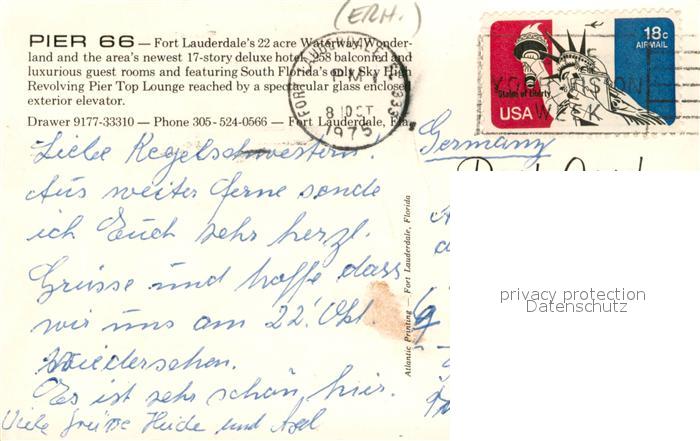 (ERH.)
PIER 66 — Fort Lauderdale's 22 acre Waterway Wonder-
land and the area's newest 17-story deluxe hotel, 258 balconied and
luxurious guest rooms and featuring South Florida's only Sky High
Revolving Pier Top Lounge reached by a spectacular glass enclosed
exterior elevator.
Drawer 9177-33310 — Phone 305-524-0566 — Fort Lauderdale, Fla.
FORT LAUDERDALE
PM
8 OCT
1975
333
18c
AIRMAIL
Statue of Liberty
USA
WEEK
Germany
Liebe Kegelschwestern!
Aus weiter Ferne sende
ich Euch sehr herzl.
Grüsse und hoffe dass
wir uns am 22. Okt.
wiedersehen.
Es ist sehr schön hier.
Viele Grüsse Heide und Axel
Atlantic Printing — Fort Lauderdale, Florida
privacy protection
Datenschutz